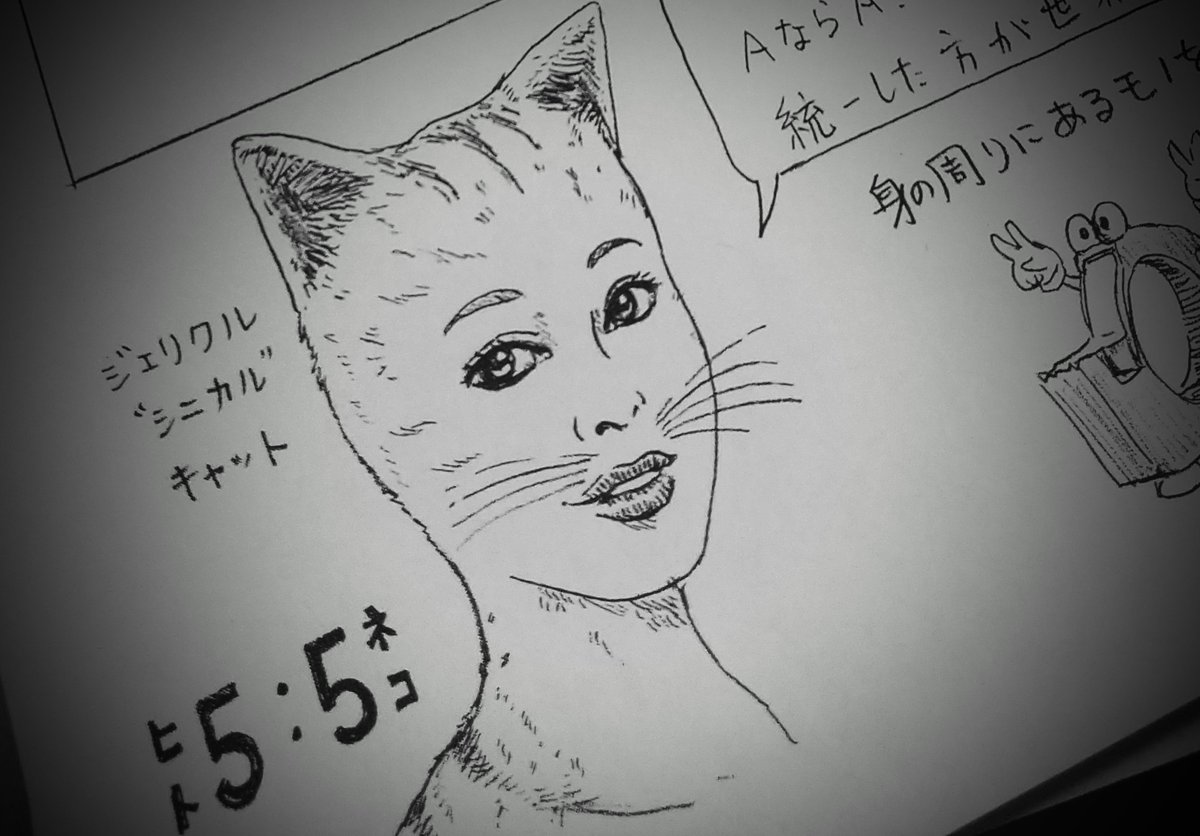 AならA
統一した方が世
身の周りにあるモノを
ジェリクル
"シニカル"
キャット
ヒト5:5ネコ